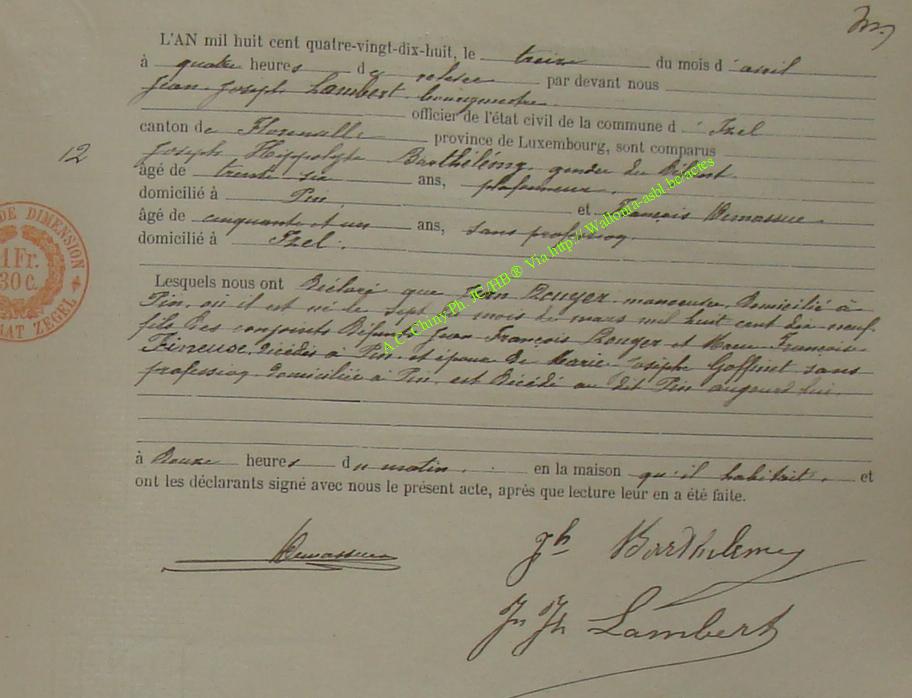 L'AN mil huit cent quatre-vingt-dix-huit, le treize du mois d'avril
à quatre heures de relevée par devant nous
Jean Joseph Lambert bourgmestre
officier de l'état civil de la commune d'Izel
canton de Florenville province de Luxembourg, sont comparus
12
Joseph Hippolyte Barthélémy, gendre du défunt
âgé de trente six ans, plafonneur,
domicilié à Pin, et François Demassue
âgé de cinquante et un ans, sans profession,
domicilié à Izel.
Lesquels nous ont déclaré que Jean Rouyer manoeuvre, domicilié à
Pin, où il est né le sept mois de mars mil huit cent dix neuf,
fils des conjoints défunts Jean François Rouyer et Marie Françoise
Fineuse, décédés à Pin, et époux de Marie Josèphe Goffinet sans
profession domiciliée à Pin, est décédé au dit Pin aujourd'hui
à douze heures du matin, en la maison qu'il habitait, et
ont les déclarants signé avec nous le présent acte, après que lecture leur en a été faite.
Demassue
Jh Barthelemy
Jn Jh Lambert
DE DIMENSION
1 Fr.
30 C.
ZEGEL
A.C. Chiny-Ph. JE/HB® Via http://Wallonia-asbl.be/actes